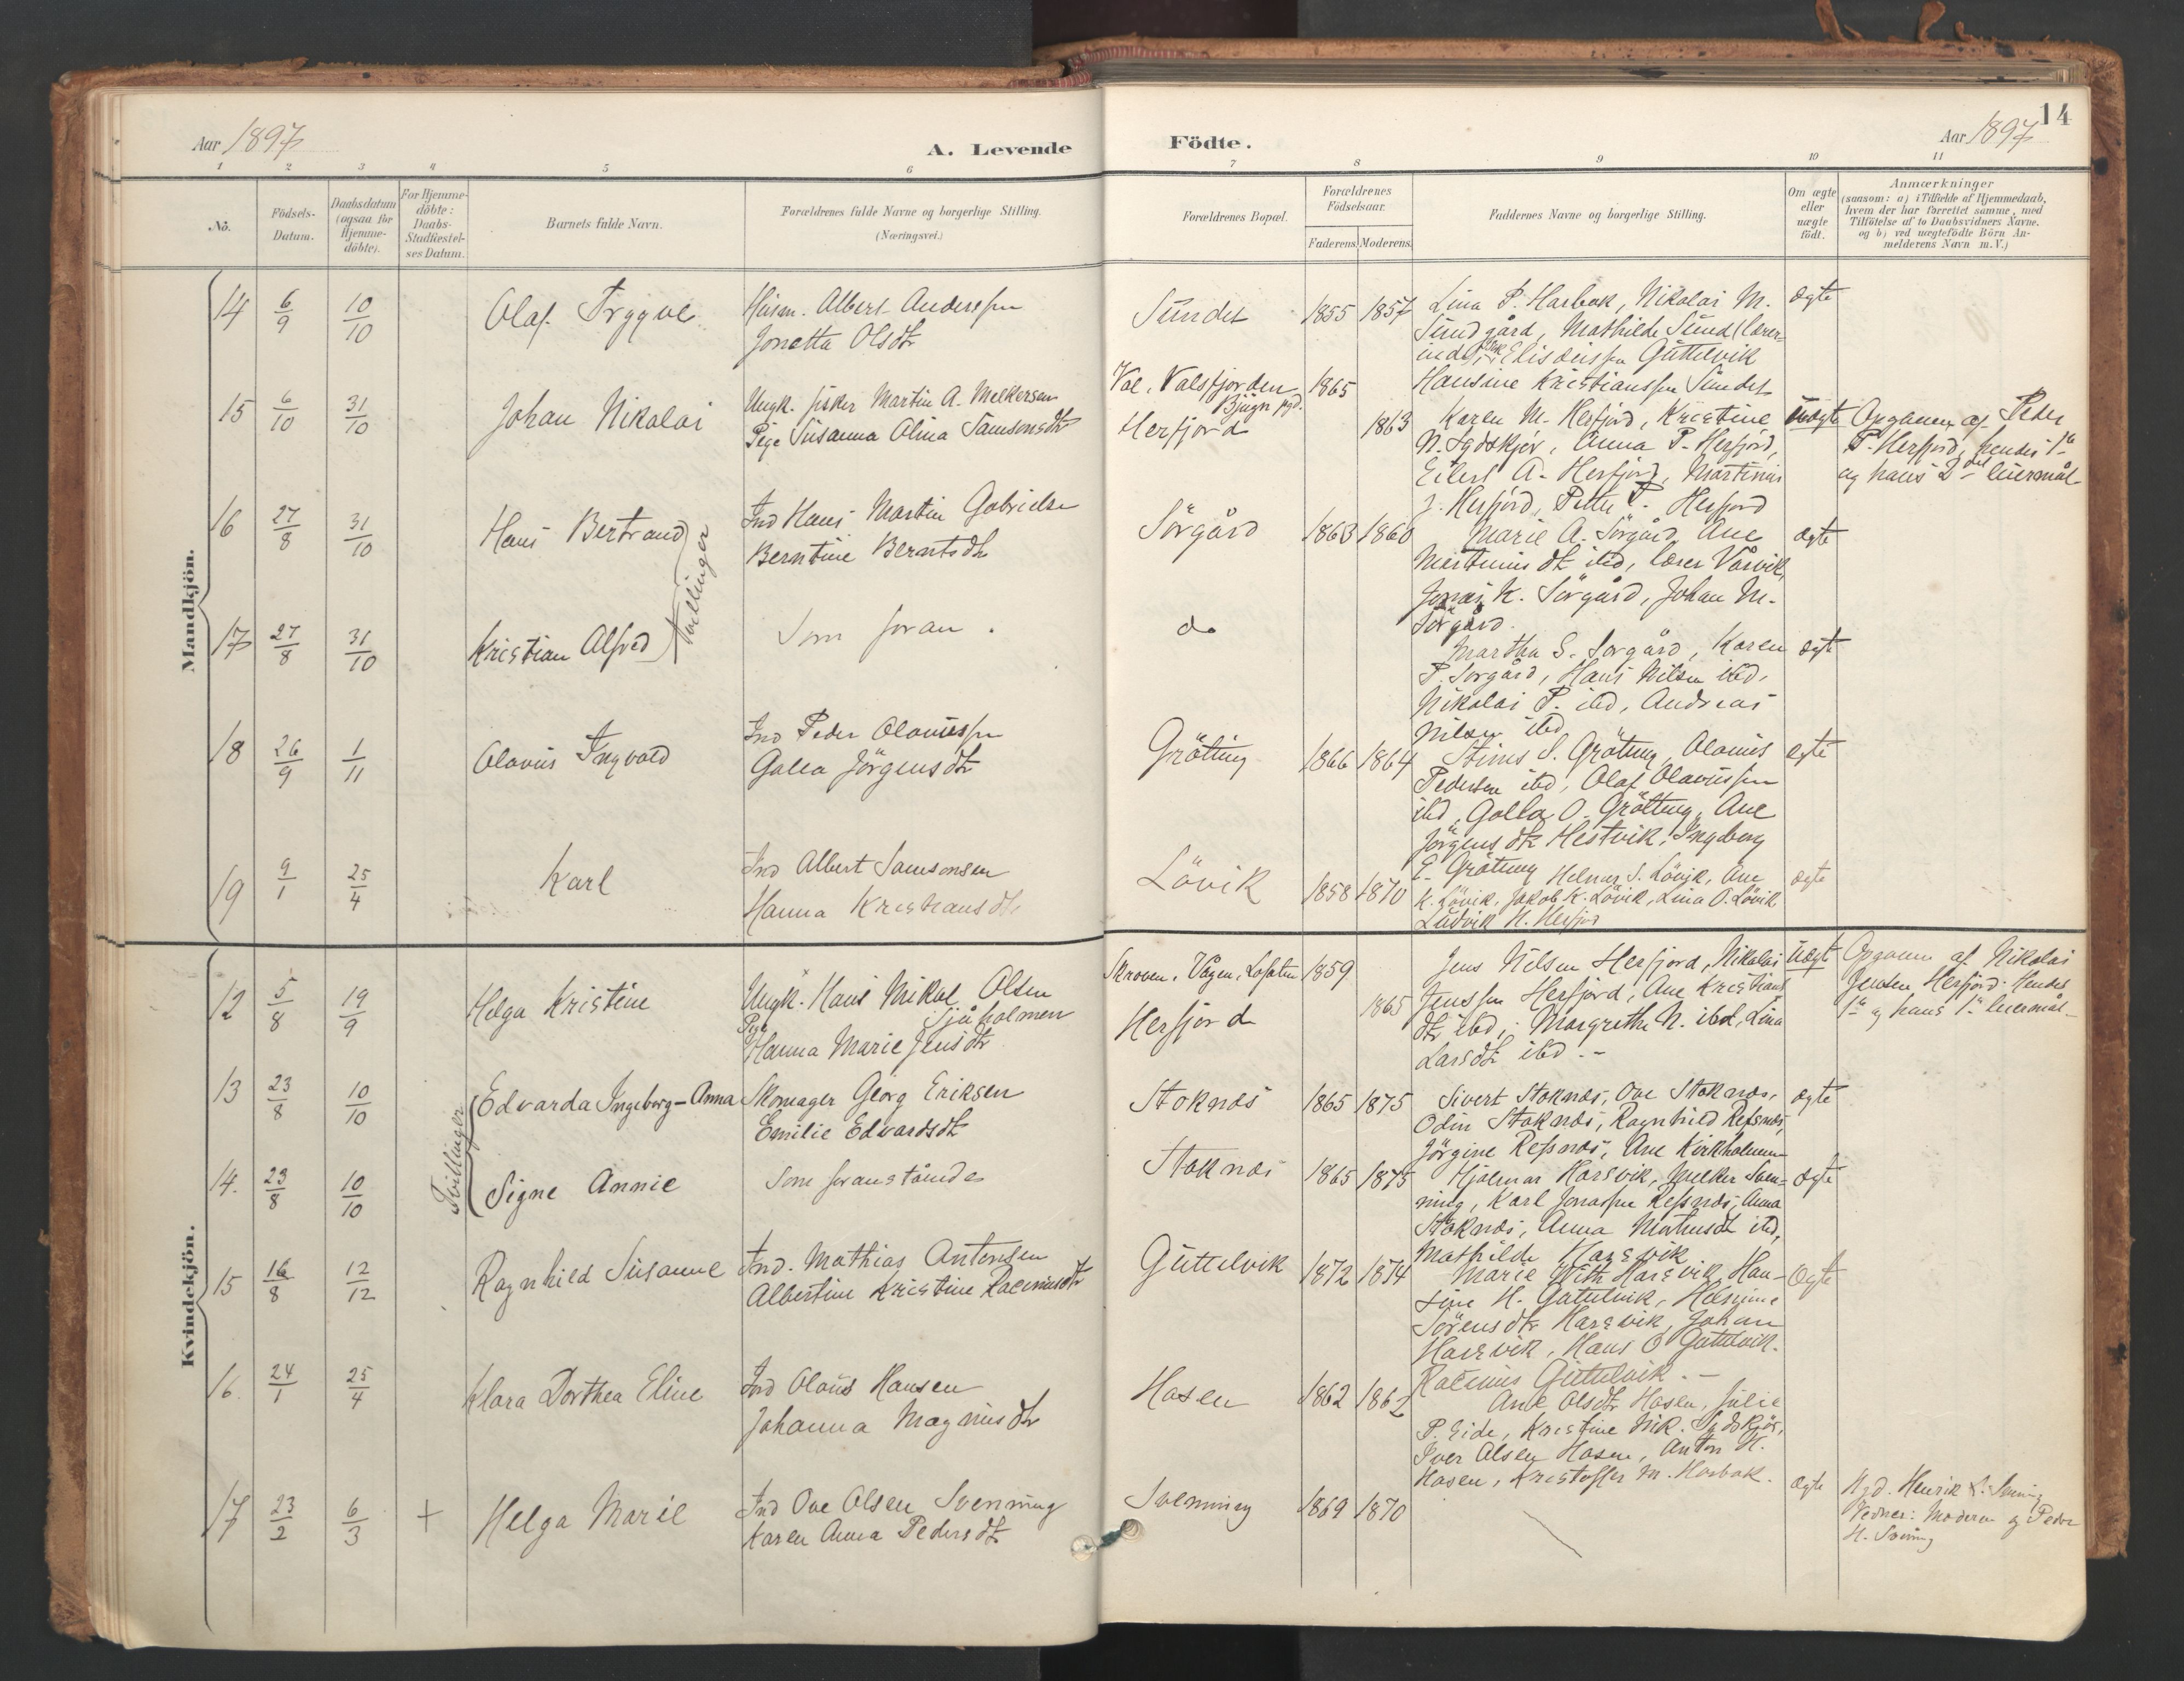 14
Aar 1897
A. Levende Födte.
Aar 1897
1 2 3 4 5 6 7 8 9 10 11
No.
Födsels-Datum.
Daabsdatum (ogsaa for Hjemme-döbte).
For Hjemme-döbte: Daabs-Stadfæstel-ses Datum.
Barnets fulde Navn.
Forældrenes fulde Navne og borgerlige Stilling. (Næringsvei.)
Forældrenes Bopæl.
Forældrenes Födselsaar.
Faderens. Moderens.
Faddernes Navne og borgerlige Stilling.
Om ægte eller uægte födt.
Anmærkninger
(saasom: a) i Tilfælde af Hjemmedaab,
hvem der har forrettet samme, med
Tilföielse af to Daabsvidners Navne.
og b) ved uægtefödte Börn An-
melderens Navn m.V.)
Mandkjön.
14 6/9 10/10 Olaf Tryggve
Husm. Albert Anderssen
Jonetta Olsdtr
Sundet 1855 1857
Lina P. Harbak, Nikolai M.
Sundgård, Mathilde Sund (lærer-
inde), Elisæussen Guttelvik
Hansine Kristianssen Sundet
ægte
15 6/10 31/10 Johan Nikolai
Ungk. fisker Martin A. Melkersen
Pige Susanna Olina Samsonsdtr
Val, Valsfjorden, Bjugn pgd. 1865
Herfjord 1863
Karen M. Herfjord, Kristine
N. Sydskjör, Anna P. Herfjord,
Eilert A. Herfjord, Martinus
J. Herfjord, Petter P. Herfjord
uægte
Opgaven af Peder
P. Herfjord, hendes 1ste
og hans 2det leiermål
16 27/8 31/10 Hans Bertrand
Ind Hans Martin Gabrielsen
Berntine Berntsdtr
Sörgård 1863 1860
Marie A. Sörgård, Ane
Martinusdtr ibd, lærer Vårvik,
Jonas K. Sörgård, Johan M.
Sörgård.
ægte
Tvillinger
17 27/8 31/10 Kristian Alfred
Som foran.
do
Martha S. Sorgård, Karen
P. Sorgård, Hans Nilsen ibd,
Nikolai P. ibd, Andreas
Nilsen ibd
ægte
18 26/9 1/11 Olavus Ingvald
Ind Peder Olavussen
Galea Jörgensdtr
Gråtting 1866 1864
S. Gråtting, Olavus
Pedersen ibd, Olaf Olavussen
ibd, Golla O. Gråtting, Ane
Jörgensdtr Hestvik, Ingborg
E. Gråtting
ægte
19 9/1 25/4 Karl
Ind Albert Samsonsen
Hanna Kristiansdtr
Lövik 1858 1870
Helmer S. Lövik, Ane
K. Lövik, Jakob K. Lövik, Lina O. Lövik
Ludvik N. Herfjor
ægte
Kvindekjön.
12 5/8 19/9 Helga Kristine
Ungk. Hans Mikal Olsen
Sjåholmen
Pige
Hanna Marie Jensdtr
Skroven, Vågen, Lofoten 1859
Herfjord 1865
Jens Nilsen Herfjord, Nikolai
Jenssen Herfjord, Ane Kristians
dtr ibd, Margrethe N. ibd, Lina
Larsdtr ibd.-
Uægte
Opgaven af Nikolai
Jensen Herfjord. Hendes
1ste og hans 1ste leiermål
13 23/8 10/10 Edvarda Ingeborg-Anna
Skomager Georg Eriksen
Emilie Edvardsdtr
Stoknes 1865 1875
Sivert Stoknes, Ove Stoknes,
Odin Stoknes, Ragnhild Refsnes,
Jörgine Refsnes, Ane Kirkholmen
ægte
Tvillinger
14. 23/8 10/10 Signe Annie
Som foranstående
Stoknes 1865 1875
Hjalmar Harsvik, Melker Sven-
ning, Karl Jonassen Refsnes, Anna
Stoknes, Anna Mathisdtr ibd,
Mathilde Harsvik
ægte
15 16/8 12/12 Ragnhild Susanne
Ind. Mathias Antonsen
Albertine Kristine Racinusdtr
Guttelvik 1872 1874
Marie With Harsvik, Han-
sine H. Guttelvik, Helmine
Sörensdtr Harsvik, Johan
Harsvik, Hans O Guttelvik.
Racinus Guttelvik.-
ægte
16. 24/1 25/4 Klara Dorthea Eline
Ind Olaus Hansen
Johanna Magnusdtr
Hasen 1862 1862
Ane Olsdtr Hasen, Julie
P. Eide, Kristine Nik. Sydskjör,
Iver Olsen Hasen, Anton H.
Hasen, Kristoffer M. Harbak.
17 23/2 6/3 + Helga Marie
Ind Ove Olsen Svenning
Karen Anna Pedersdtr
Svenning 1869 1870
ægte
Hjd. Henrik L. Svening
Vidner: Moderen og Peder
H. Svening